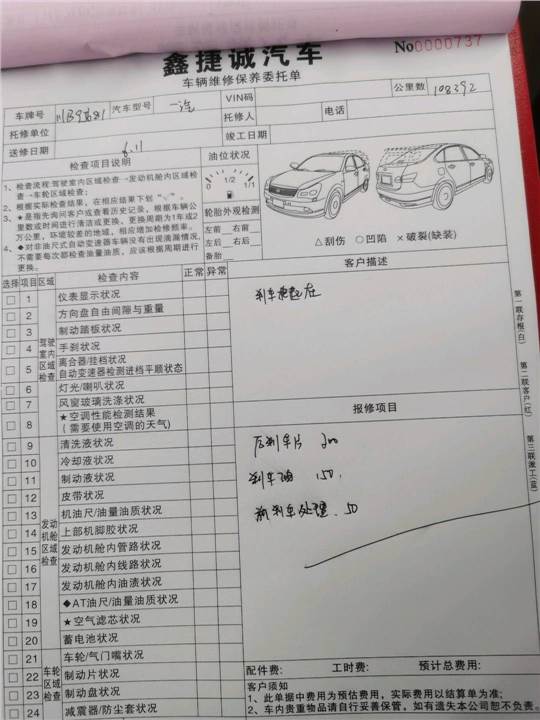 鑫捷诚汽车
No0000737
车辆维修保养委托单
车牌号 汽车型号 一汽 VIN码 公里数 108392
托修单位 托修人 电话
送修日期 6.11 竣工日期
检查项目说明
1、检查流程:驾驶室内区域检查→发动机舱内区域检查→车轮区域检查;
2、根据实际检查结果,在相应结果下划"√";
3、★是指先询问客户或查看历史记录,根据车辆公里数或时间进行清洁或更换。更换周期为1年或2万公里,环境较差的地域,相应增加检修频率。
4、◆对非油尺式自动变速器车辆没有出现滴漏情况,不需要每次都检查油量油质,应该根据周期进行更换。
油位状况
0 1/2 1/1
轮胎外观检测
左前 右前
左后 右后
备胎
△刮伤 ○凹陷 ×破裂(缺装)
选择 项目 区域 检查内容 正常 异常
驾驶室内区域检查
1 仪表显示状况
2 方向盘自由间隙与重量
3 制动踏板状况
4 手刹状况
5 离合器/挂档状况
自动变速器检测进档平顺状态
6 灯光/喇叭状况
7 风窗玻璃洗涤状况
8 ★空调性能检测结果
(需要使用空调的天气)
发动机舱区域检查
9 清洗液状况
10 冷却液状况
11 制动液状况
12 皮带状况
13 机油尺/油量油质状况
14 上部机脚胶状况
15 发动机舱内管路状况
16 发动机舱内线路状况
17 发动机舱内油渍状况
18 ◆AT油尺/油量油质状况
19 ★空气滤芯状况
20 蓄电池状况
车轮区域检查
21 车轮/气门嘴状况
22 制动片状况
23 制动盘状况
24 减震器/防尘套状况
客户描述
刹车
报修项目
后刹车片 200
刹车油 150
前刹车处理 50
配件费: 工时费: 预计总费用:
客户须知
1、此单据中费用为预估费用,实际费用以结算单为准;
2、车内贵重物品请自行妥善保管,如有遗失本公司恕不负责。
第一联存根(白)
第二联客户(红)
第三联派工(蓝)